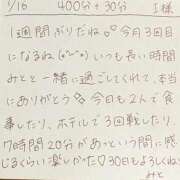 1/16 400分+30分 I様
1週間ぶりだね 今月3回目
になるね(o˘◡˘o) いつも長い時間
みとと一緒に過ごしてくれて、本当
にありがとう 今日も2人で食
事したり、ホテルで3回戦したり、
7時間20分があっという間に感
じるくらい楽しかった 30日もよろしくね♪
みと